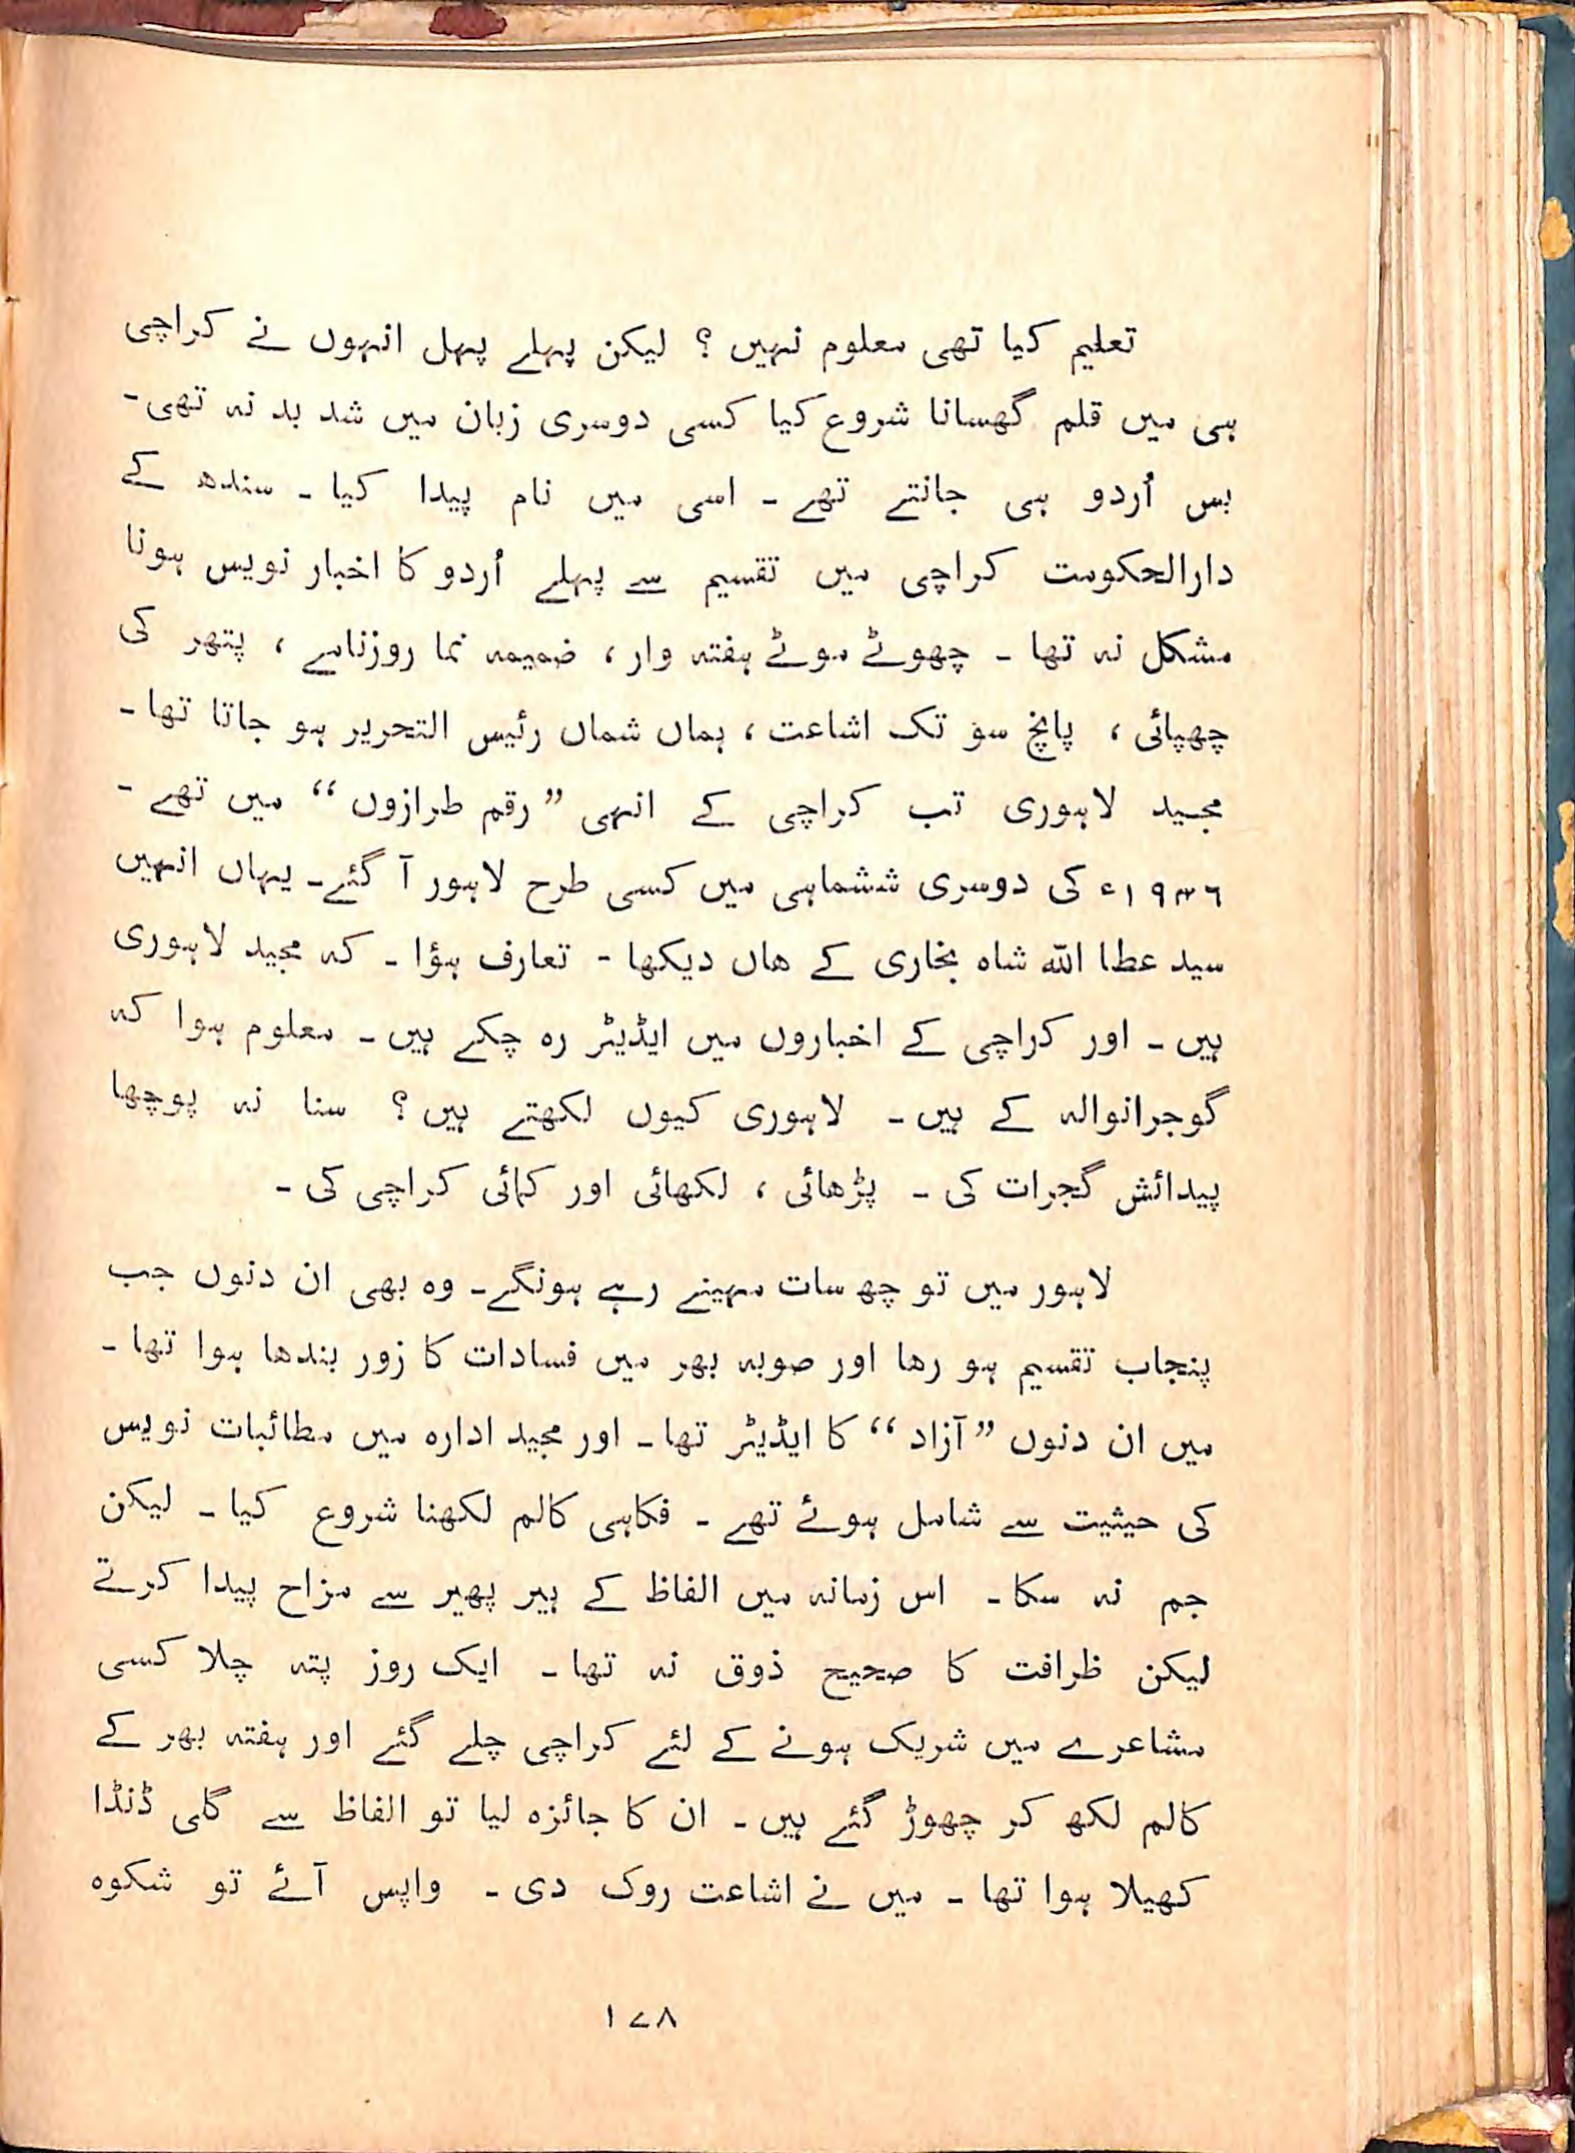 تعلیم کیا تھی معلوم نہیں ؟ لیکن پہلے پہل انہوں نے کراچی
ہی میں قلم گھسانا شروع کیا کسی دوسری زبان میں شد بد نہ تھی۔
بس اُردو ہی جانتے تھے ۔ اسی میں نام پیدا کیا ۔ سندھ کے
دارالحکومت کراچی میں تقسیم سے پہلے اُردو کا اخبار نویس ہونا
مشکل نہ تھا ۔ چھوٹے موٹے ہفتہ وار ، ضمیمہ نما روزنامے ، پتھر کی
چھپائی ، پانچ سو تک اشاعت ، ہماں شماں رئیس التحریر ہو جاتا تھا ۔
مجید لاہوری تب کراچی کے انہی ”رقم طرازوں“ میں تھے ۔
۱۹۴۶ء کی دوسری ششماہی میں کسی طرح لاہور آ گئے۔ یہاں انہیں
سید عطا اللہ شاہ بخاری کے ھاں دیکھا ۔ تعارف ہؤا ۔ کہ مجید لاہوری
ہیں ۔ اور کراچی کے اخباروں میں ایڈیٹر رہ چکے ہیں ۔ معلوم ہوا کہ
گوجرانوالہ کے ہیں ۔ لاہوری کیوں لکھتے ہیں ؟ سنا نہ پوچھا
پیدائش گجرات کی ۔ پڑھائی ، لکھائی اور کمائی کراچی کی ۔
لاہور میں تو چھ سات مہینے رہے ہونگے۔ وہ بھی ان دنوں جب
پنجاب تقسیم ہو رھا اور صوبہ بھر میں فسادات کا زور بندھا ہوا تھا ۔
میں ان دنوں ”آزاد“ کا ایڈیٹر تھا ۔ اور مجید ادارہ میں مطائبات نویس
کی حیثیت سے شامل ہوئے تھے ۔ فکاہی کالم لکھنا شروع کیا ۔ لیکن
جم نہ سکا ۔ اس زمانہ میں الفاظ کے ہیر پھیر سے مزاح پیدا کرتے
لیکن ظرافت کا صحیح ذوق نہ تھا ۔ ایک روز پتہ چلا کسی
مشاعرے میں شریک ہونے کے لئے کراچی چلے گئے اور ہفتہ بھر کے
کالم لکھ کر چھوڑ گئے ہیں ۔ ان کا جائزہ لیا تو الفاظ سے گلی ڈنڈا
کھیلا ہوا تھا ۔ میں نے اشاعت روک دی ۔ واپس آئے تو شکوہ
۱۷۸